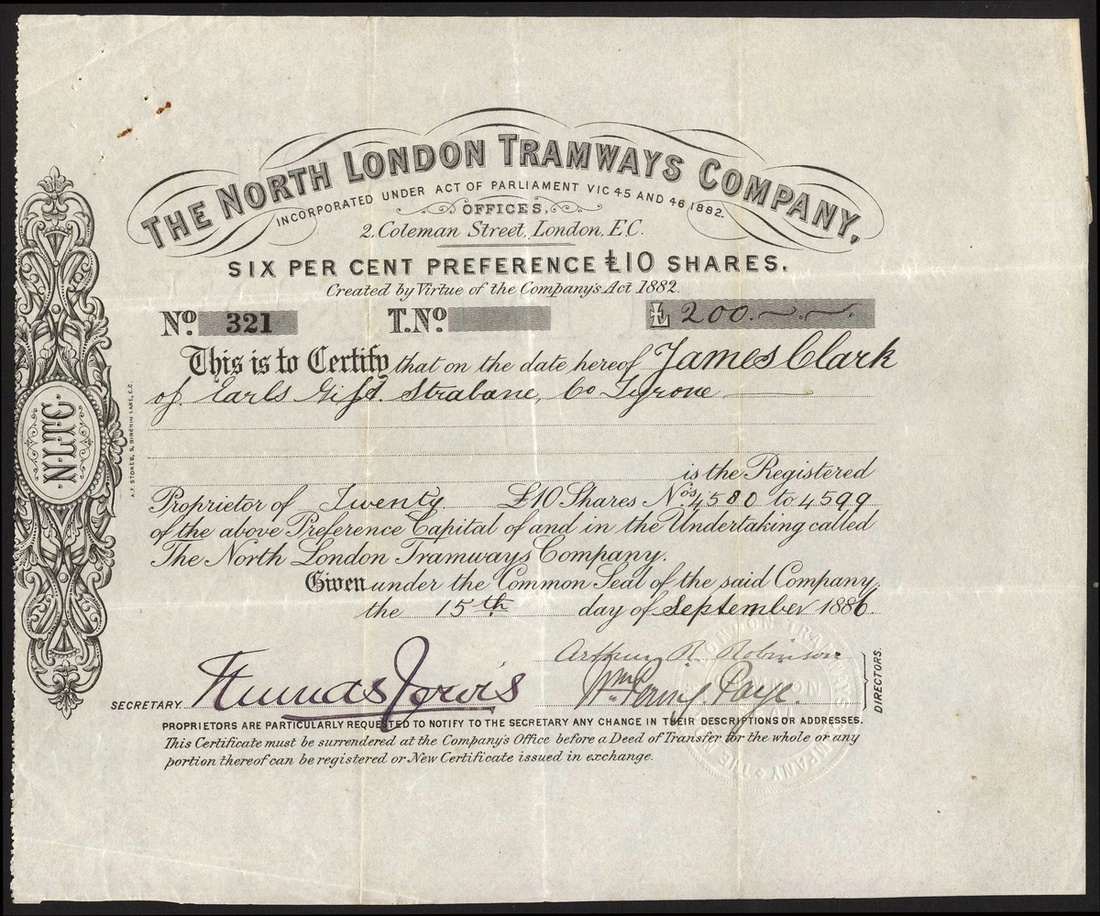 THE NORTH LONDON TRAMWAYS COMPANY,
INCORPORATED UNDER ACT OF PARLIAMENT VIC 45 AND 46 1882.
OFFICES,
2, Coleman Street, London, E.C.
SIX PER CENT PREFERENCE £10 SHARES.
Created by Virtue of the Company's Act 1882.
No. 321 T. No. £ 200.
This is to Certify that on the date hereof James Clark
of Earls Gift. Strabane, Co Tyrone
is the Registered
Proprietor of Twenty £10 Shares Nos. 4580 to 4599
of the above Preference Capital of and in the Undertaking called
The North London Tramways Company.
Given under the Common Seal of the said Company,
the 15th day of September 1886.
Arthur R. Robinson
SECRETARY. Jervis Wm. Page.
DIRECTORS.
PROPRIETORS ARE PARTICULARLY REQUESTED TO NOTIFY TO THE SECRETARY ANY CHANGE IN THEIR DESCRIPTIONS OR ADDRESSES.
This Certificate must be surrendered at the Company's Office before a Deed of Transfer for the whole or any
portion thereof can be registered or New Certificate issued in exchange.
N.L.T.C.
A.F. STOKES, 5, BIRCHIN LANE, E.C.
THE NORTH LONDON TRAMWAYS COMPANY
COMMON SEAL